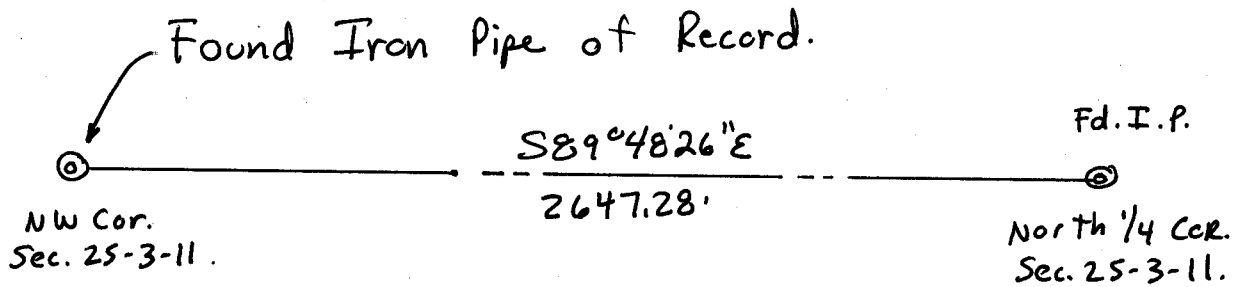 Found Iron Pipe of Record.
Fd. I. P.
S89°48'26"E
2647.28'
NW Cor.
Sec. 25-3-11.
North 1/4 Cor.
Sec. 25-3-11.